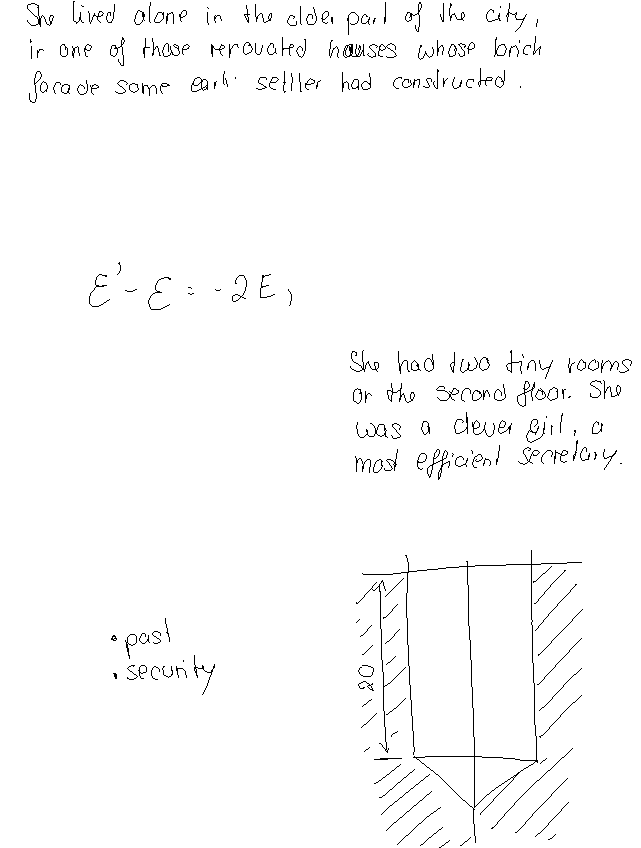 She lived alone in the older part of the city,
in one of those renovated houses whose brick
facade some early settler had constructed.
ε' - ε = -2E,
She had two tiny rooms
on the second floor. She
was a clever girl, a
most efficient secretary.
• past
• security
20